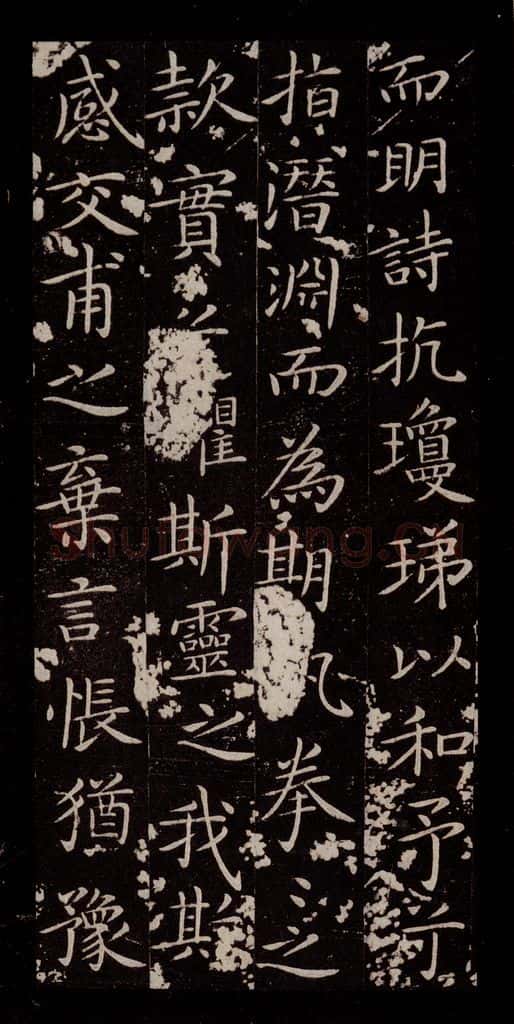 而明詩抗瓊珶以和予兮
指潛淵而為期拳〻之
款實懼斯靈之我欺
感交甫之棄言悵猶豫